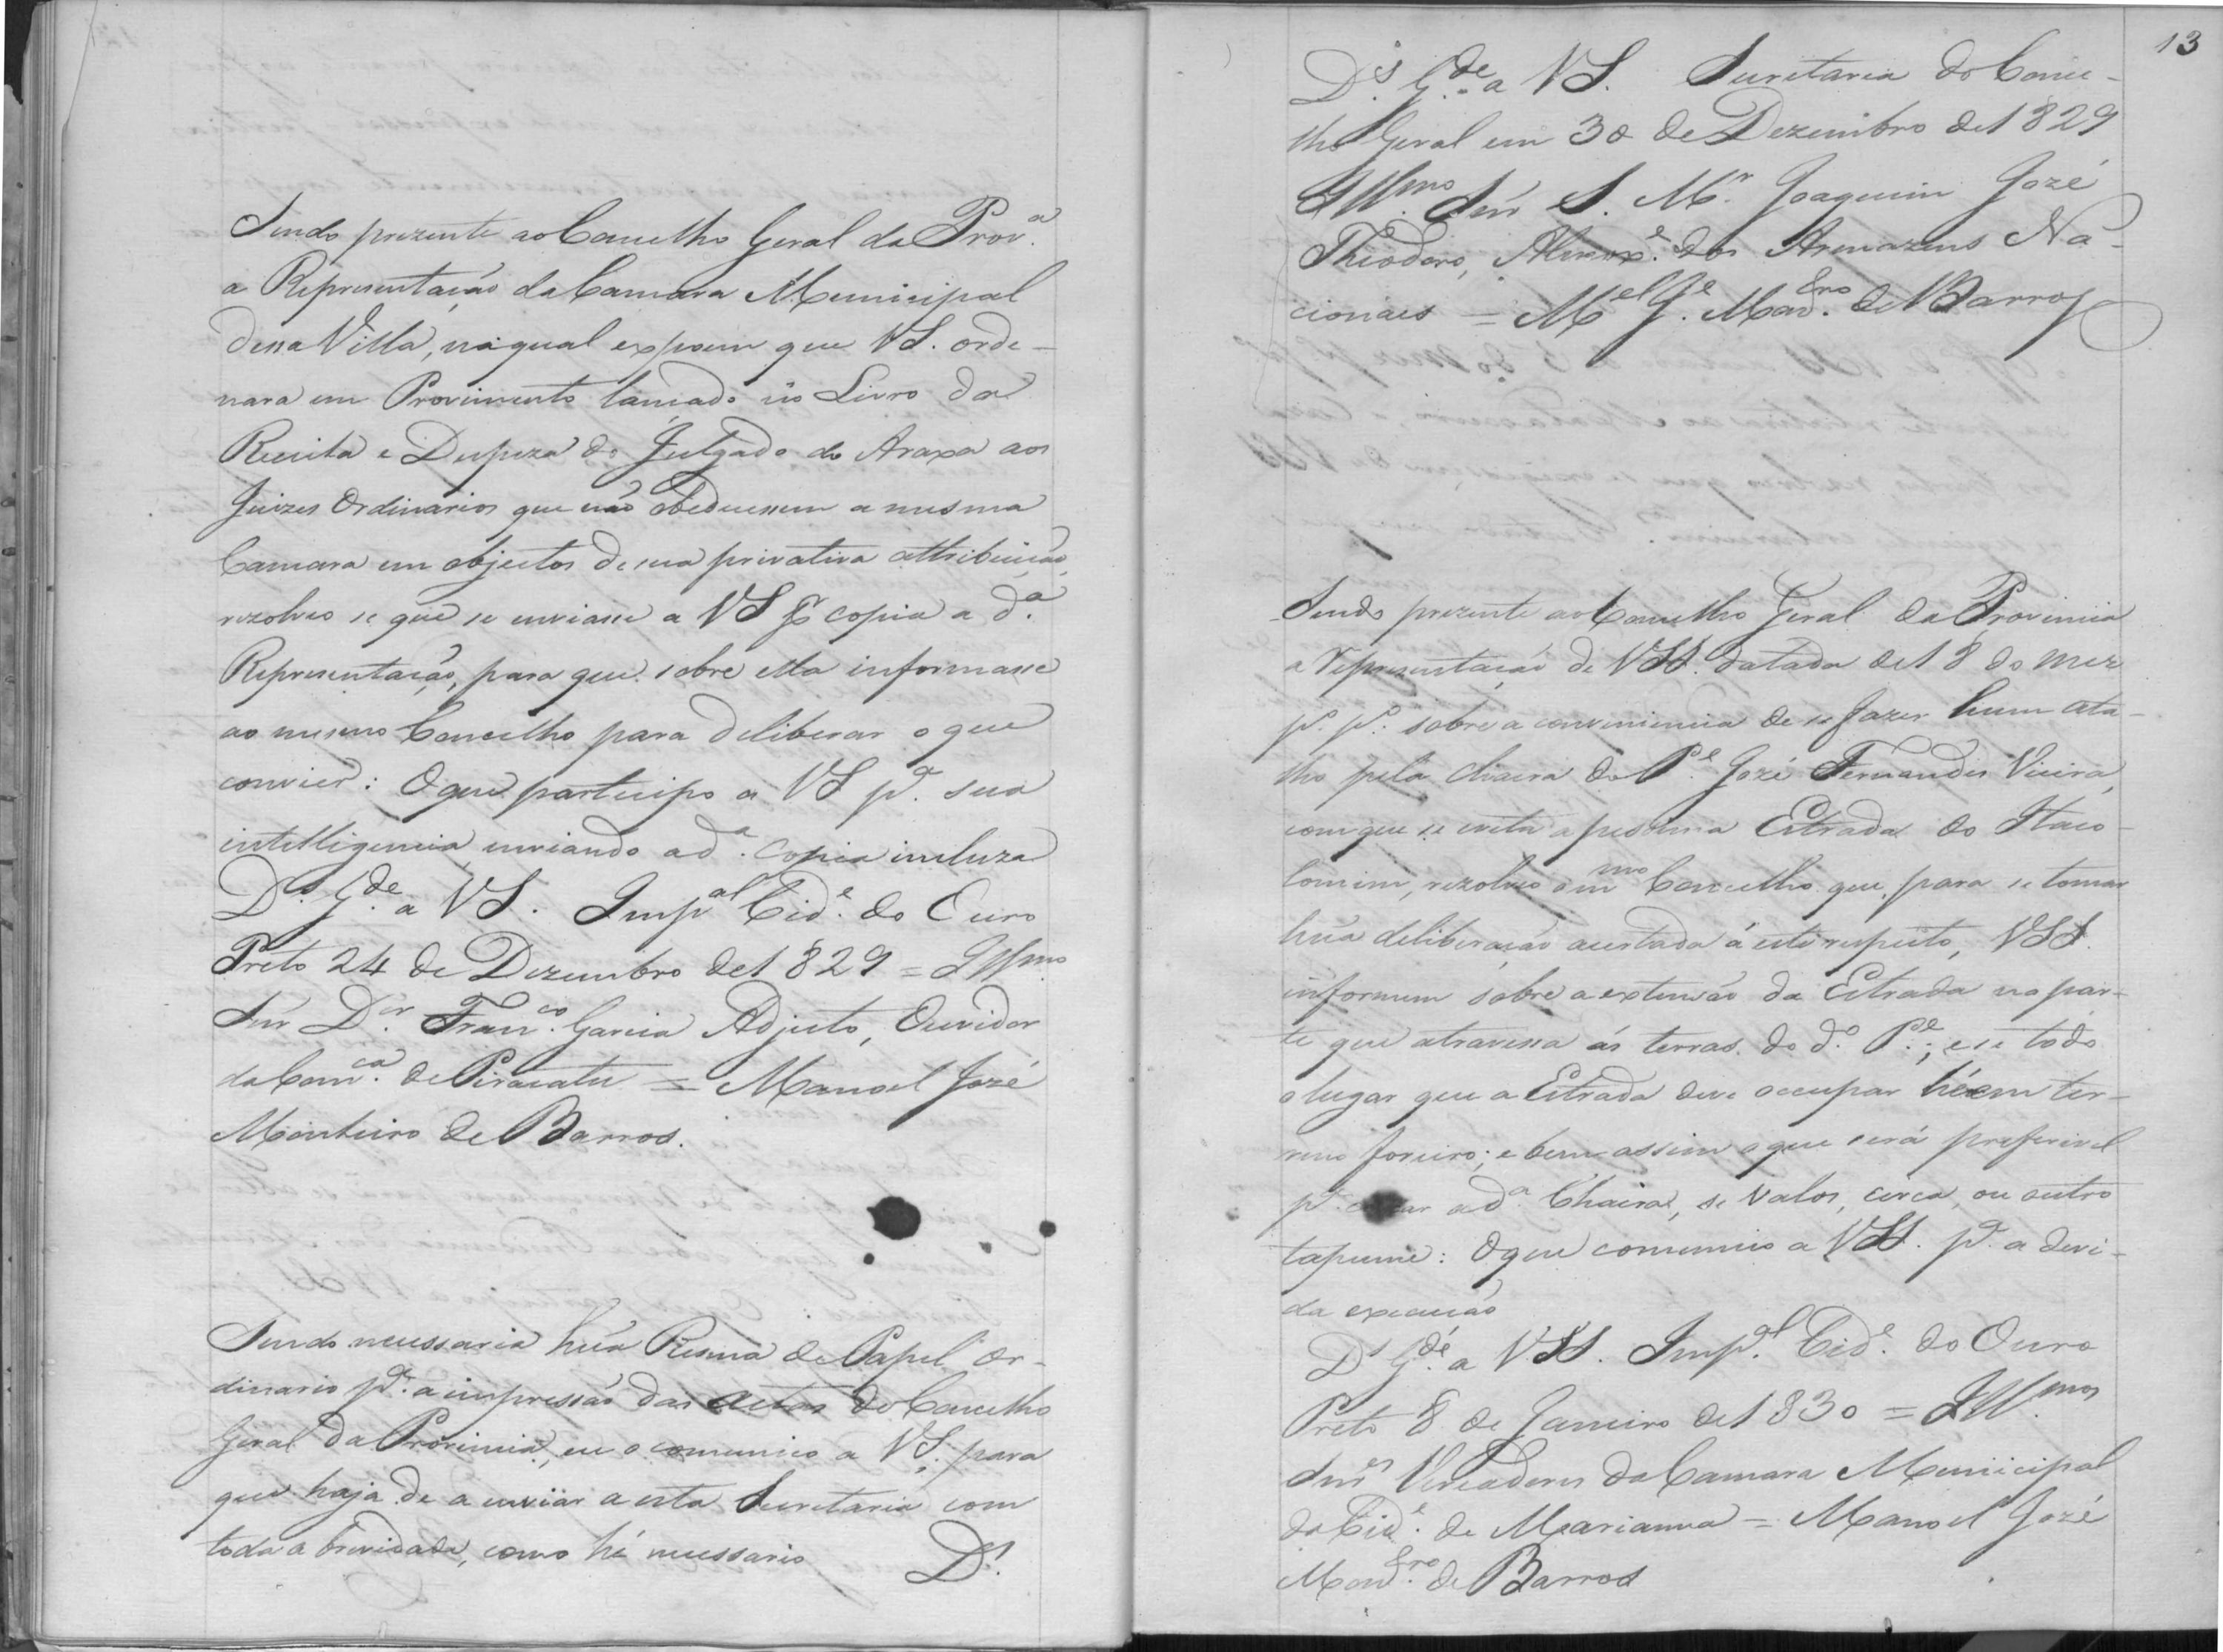 Sendo prezente ao Concelho Geral da Prov.ª
a Representação da Camara Municipal
dessa Villa, na qual expoem que VS. orde-
nara em Provimento lançado no Livro da
Receita e Despeza do Julgado do Araxa aos
Juizes Ordinarios que não obedecessem a mesma
Camara em objectos de sua privativa attribuição,
rezolveo se que se enviasse a VS por copia a d.ª
Representação, para que sobre ella informasse
ao mesmo Concelho para deliberar o que
convier: O que participo a VS p.ª sua
intelligencia, enviando a d.ª copia incluza
D.s G.de a VS. Imp.al Cid.e do Ouro
Preto 24 de Dezembro de 1829 = Ill.mo
Snr D.or Fran.co Garcia Adjuto, Ouvidor
da Com.ca de Piracatu = Manoel José
Monteiro de Barros.
Sendo necessaria hũa Resma de Papel Or-
dinario p.ª a impressão das Actas do Concelho
Geral da Provincia, eu o comunico a VS. para
que haja de a enviar a esta Secretaria com
toda a brevidade, como hé necessario D.s
13
D.s G.de a VS. Secretaria do Conce-
lho Geral em 30 de Dezembro de 1829
Ill.mo Snr S. M.r Joaquim José
Theodoro, Almox.e dos Armazens Na-
cionaes = M.el J.e Mon.tro de Barros
Sendo prezente ao Concelho Geral da Provincia
a Representação de VSS. datada de 18 do mez
p. p. sobre a conveniencia de se fazer hum ata-
lho pela chacra do P.e José Fernandes Vieira,
com que se evita a pessima Estrada do Itaco-
lomim, rezolveo o m.mo Concelho que, para se tomar
hũa deliberação acertada á este respeito, VSS.
informem sobre a extensão da Estrada na par-
te que atravessa ás terras do d.º P.e; e se todo
o lugar que a Estrada deve occupar hé em ter-
reno foreiro; e bem assim o que será preferivel
p.ª a d.ª Chacra, se valos, cerca, ou outro
tapume: O que comunico a VSS. p.ª a devi-
da execução
D.s G.de a VSS. Imp.al Cid.e do Ouro
Preto 8 de Janeiro de 1830 = Ill.mos
Snr.es Vereadores da Camara Municipal
da Cid.e de Marianna = Manoel José
Mon.tro de Barros